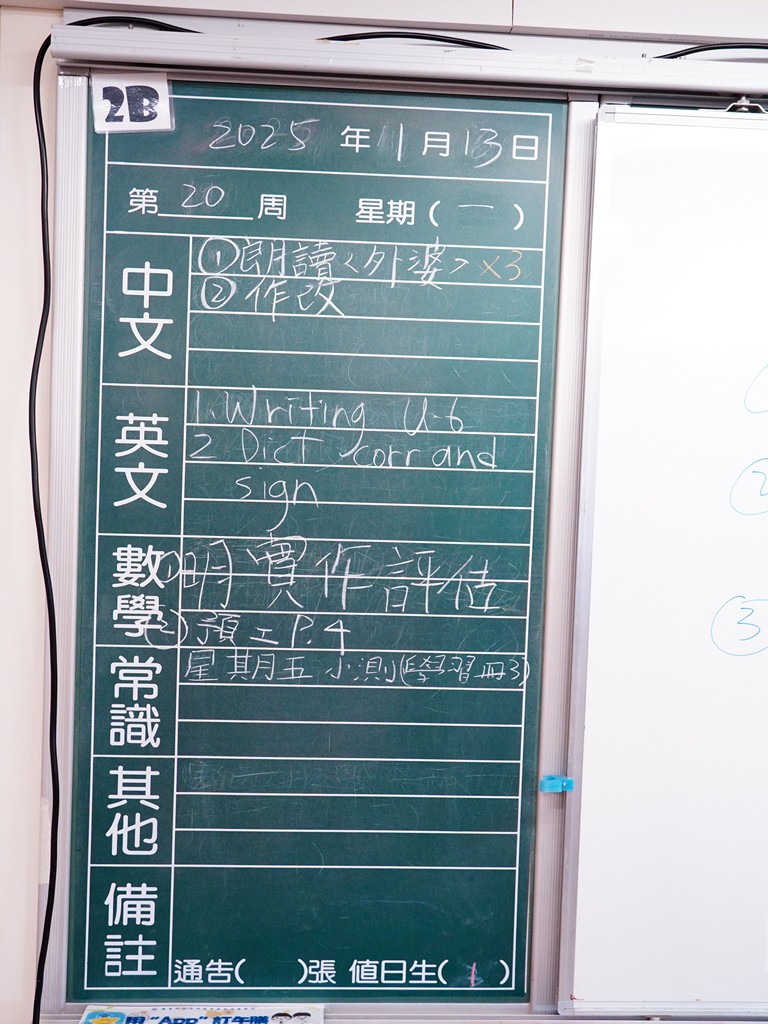 2B
2025 年 1 月 13 日
第 20 周 星期 ( 一 )
中文
① 朗讀〈外婆〉x3
② 作改
英文
1. Writing U.6
2 Dict corr and
sign
數學
① 明實作評估
② 預工 P.4
常識
星期五 小測(學習冊3)
其他
備註
通告( )張 值日生( 1 )
用“App”訂午膳
②
③